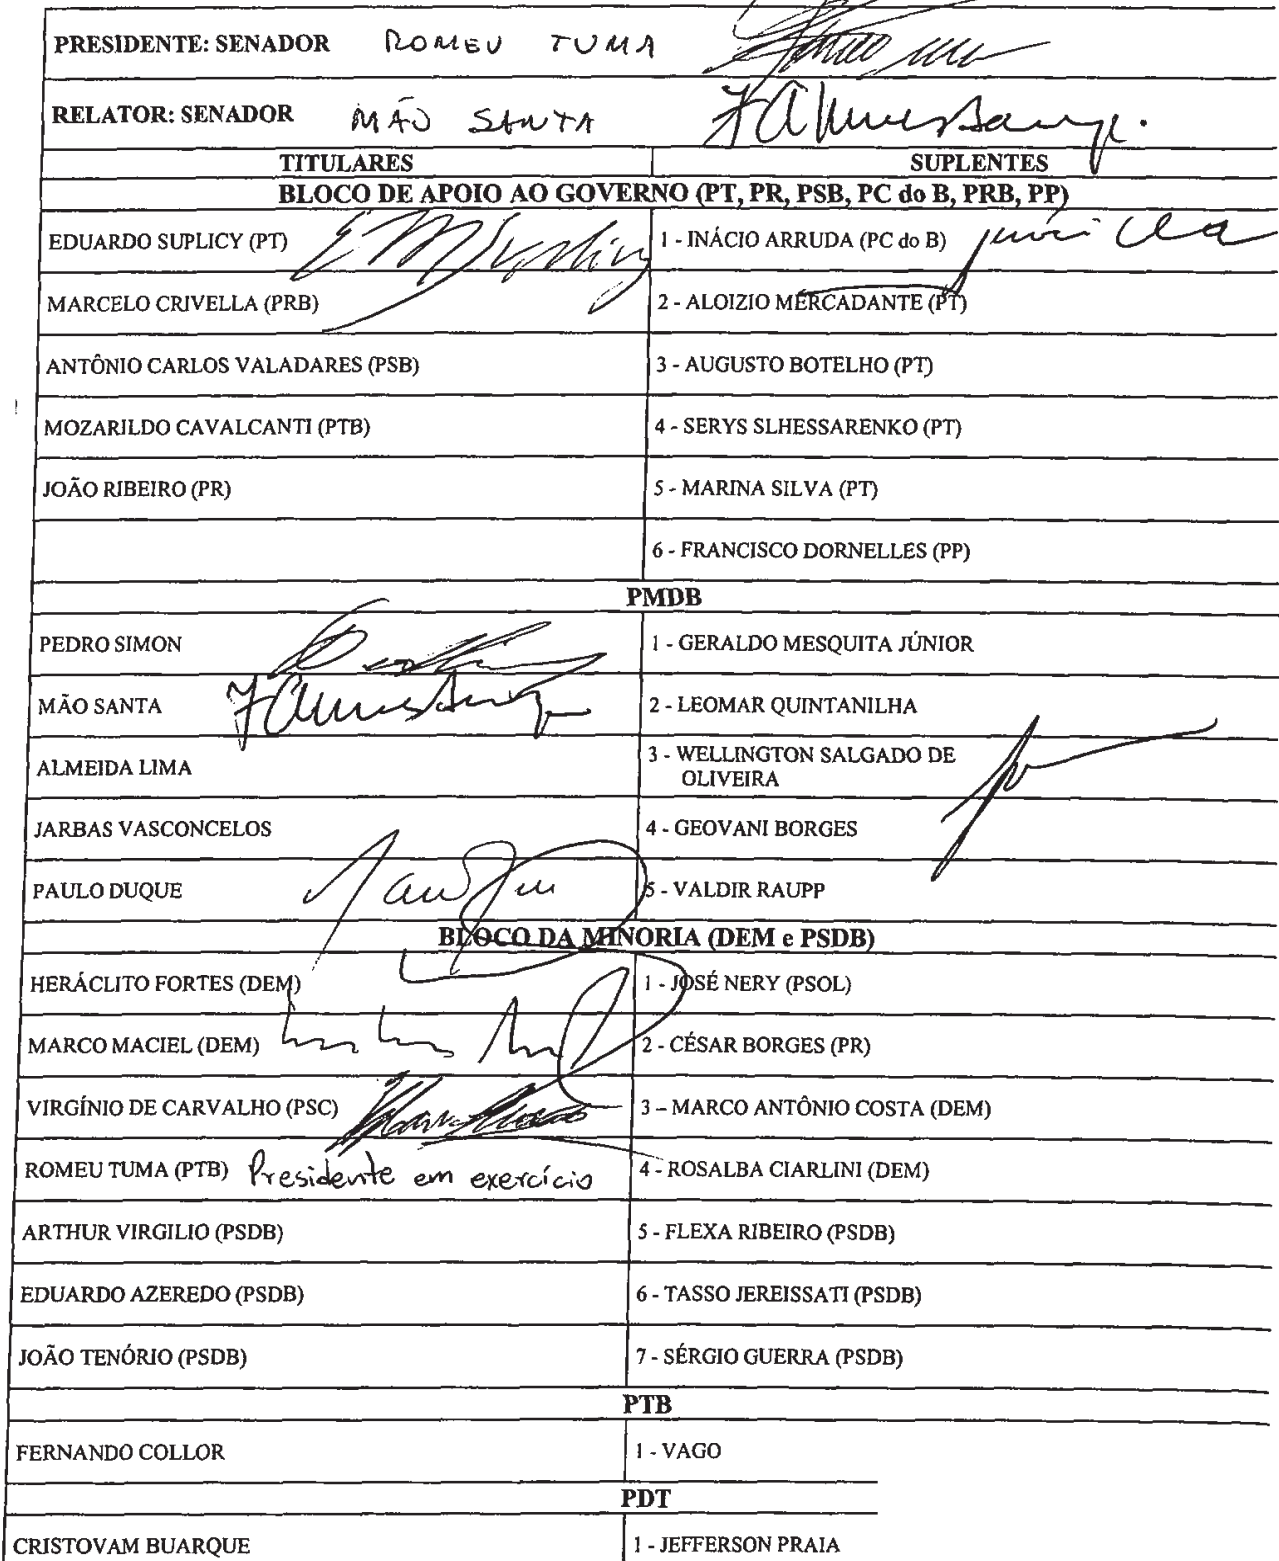 PRESIDENTE: SENADOR ROMEU TUMA
RELATOR: SENADOR MÃO SANTA
TITULARES SUPLENTES
BLOCO DE APOIO AO GOVERNO (PT, PR, PSB, PC do B, PRB, PP)
EDUARDO SUPLICY (PT) 1 - INÁCIO ARRUDA (PC do B)
MARCELO CRIVELLA (PRB) 2 - ALOIZIO MERCADANTE (PT)
ANTÔNIO CARLOS VALADARES (PSB) 3 - AUGUSTO BOTELHO (PT)
MOZARILDO CAVALCANTI (PTB) 4 - SERYS SLHESSARENKO (PT)
JOÃO RIBEIRO (PR) 5 - MARINA SILVA (PT)
6 - FRANCISCO DORNELLES (PP)
PMDB
PEDRO SIMON 1 - GERALDO MESQUITA JÚNIOR
MÃO SANTA 2 - LEOMAR QUINTANILHA
ALMEIDA LIMA 3 - WELLINGTON SALGADO DE
OLIVEIRA
JARBAS VASCONCELOS 4 - GEOVANI BORGES
PAULO DUQUE 5 - VALDIR RAUPP
BLOCO DA MINORIA (DEM e PSDB)
HERÁCLITO FORTES (DEM) 1 - JOSÉ NERY (PSOL)
MARCO MACIEL (DEM) 2 - CÉSAR BORGES (PR)
VIRGÍNIO DE CARVALHO (PSC) 3 – MARCO ANTÔNIO COSTA (DEM)
ROMEU TUMA (PTB) Presidente em exercício 4 - ROSALBA CIARLINI (DEM)
ARTHUR VIRGILIO (PSDB) 5 - FLEXA RIBEIRO (PSDB)
EDUARDO AZEREDO (PSDB) 6 - TASSO JEREISSATI (PSDB)
JOÃO TENÓRIO (PSDB) 7 - SÉRGIO GUERRA (PSDB)
PTB
FERNANDO COLLOR 1 - VAGO
PDT
CRISTOVAM BUARQUE 1 - JEFFERSON PRAIA